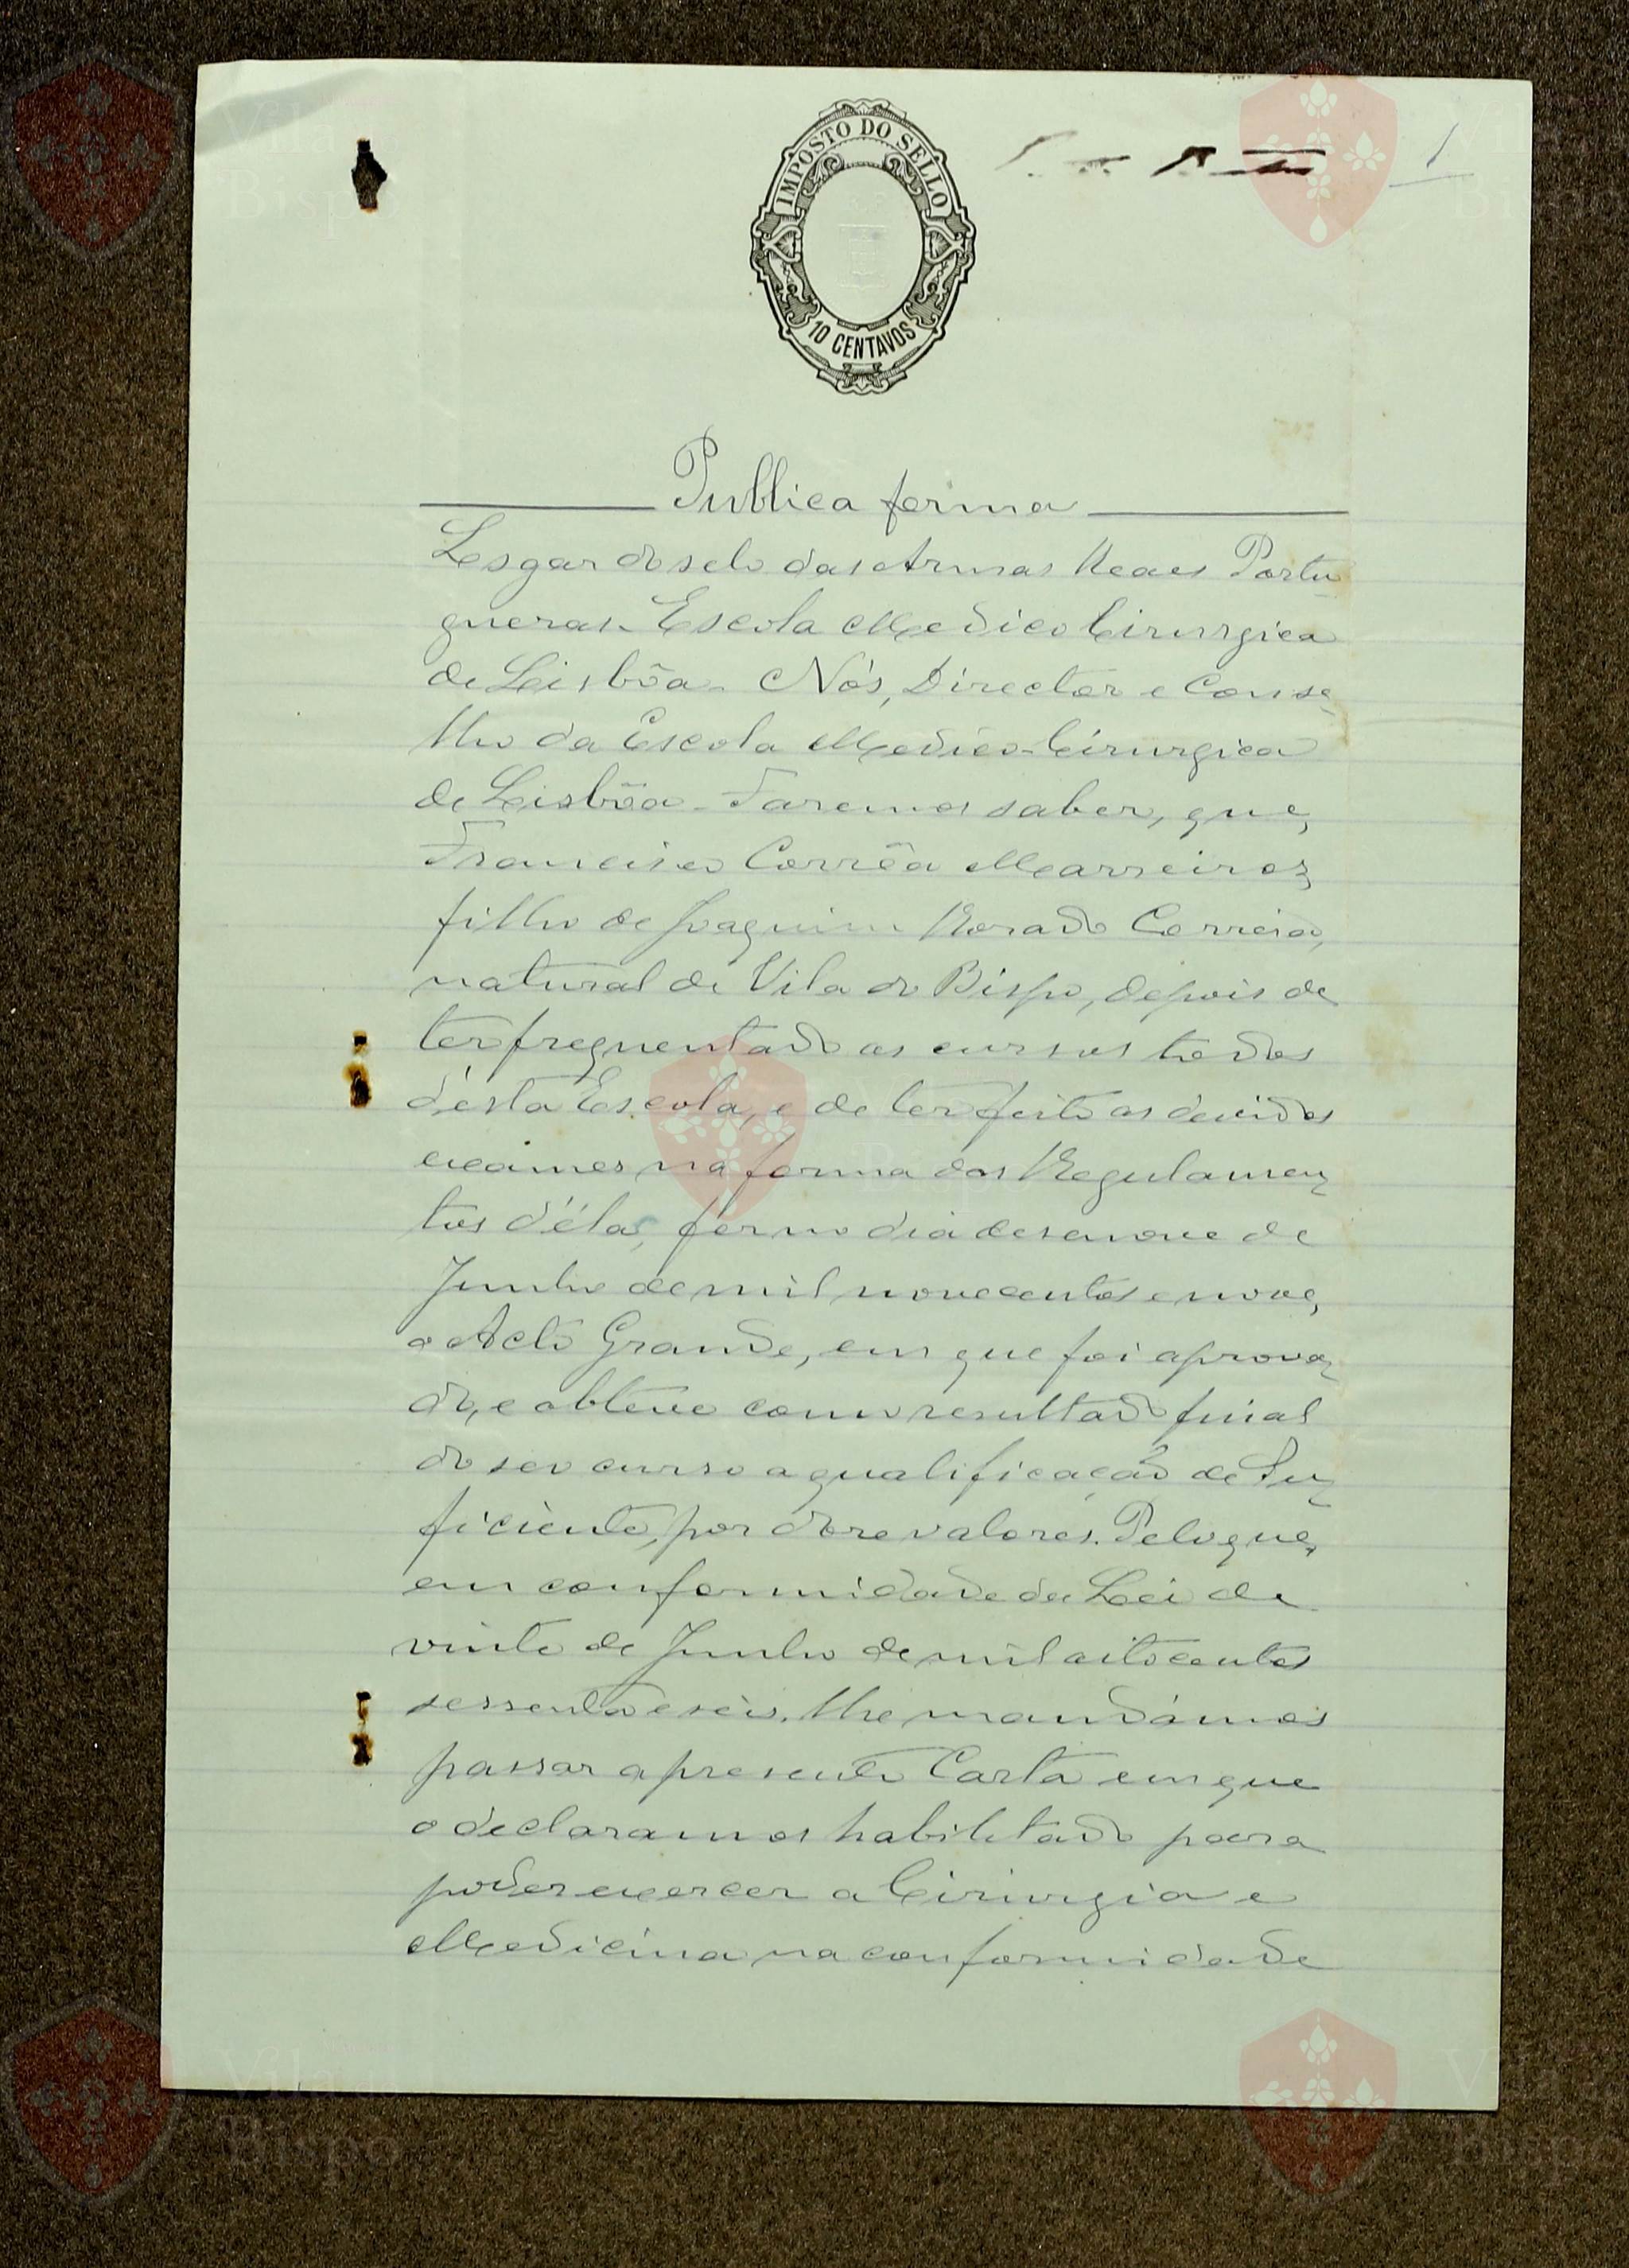 IMPOSTO DO SELLO
10 CENTAVOS
1
Publica forma
Logar do selo das Armas Reaes Portu-
guezas. Escola Medico Cirurgica
de Lisbôa. Nós, Director e Conse-
lho da Escola Medico-Cirurgica
de Lisbôa. Fazemos saber, que,
Francisco Corrêa Marreiros,
filho de Joaquim Correia,
natural de Vila do Bispo, depois de
ter frequentado os cursos todos
d'esta Escola, e de ter feito os devidos
exames na forma dos Regulamen-
tos d'éla, fez no dia desenove de
Junho de mil novecentos e nove,
o Acto Grande, em que foi aprova-
do, e obteve como resultado final
do seu curso a qualificação de Su-
ficiente, por doze valores. Pelo que,
em conformidade da Lei de
vinte de Junho de mil oitocentos
sessenta e seis, lhe mandámos
passar a presente Carta em que
o declaramos habilitado para
poder exercer a Cirurgia e
Medicina na conformidade
Vila do
Bispo